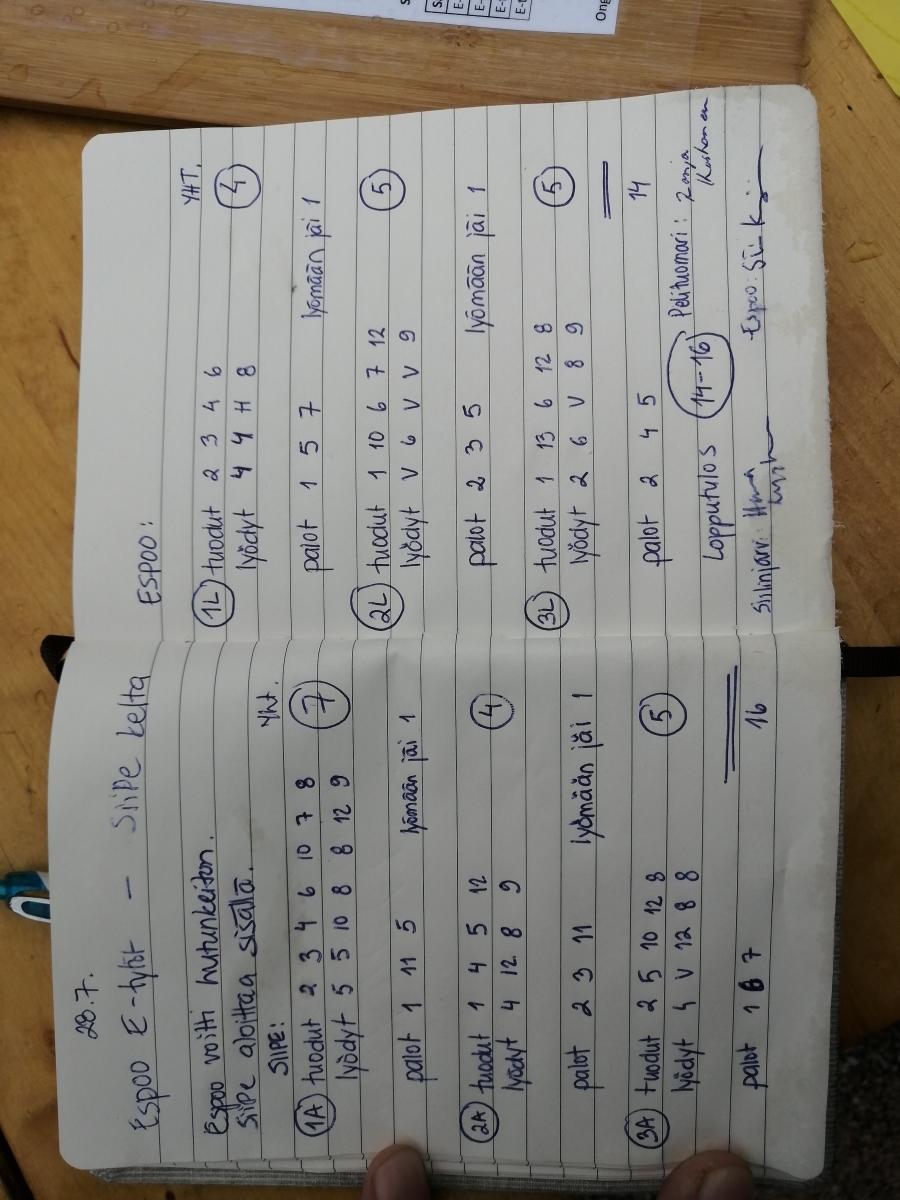 28.7.
Espoo E-tytöt - Siipe kelta
Espoo voitti hutunkeiton.
Siipe aloittaa sisältä.
SIIPE: Yht.
1A tuodut 2 3 4 6 10 7 8 7
lyödyt 5 5 10 8 8 12 9
palot 1 11 5 lyömään jäi 1
2A tuodut 1 4 5 12 4
lyödyt 4 12 8 9
palot 2 3 11 lyömään jäi 1
3A tuodut 2 5 10 12 8 5
lyödyt 4 V 12 8 8
palot 1 6 7 16
ESPOO: YHT.
1L tuodut 2 3 4 6 4
lyödyt 4 4 H 8
palot 1 5 7 lyömään jäi 1
2L tuodut 1 10 6 7 12 5
lyödyt V 6 V V 9
palot 2 3 5 lyömään jäi 1
3L tuodut 1 13 6 12 8 5
lyödyt 2 6 V 8 9
palot 2 4 5 14
Lopputulos 14-16 Pelituomari:
Siilinjärvi: Espoo:
E-
E-
E-t
E-t
Ong